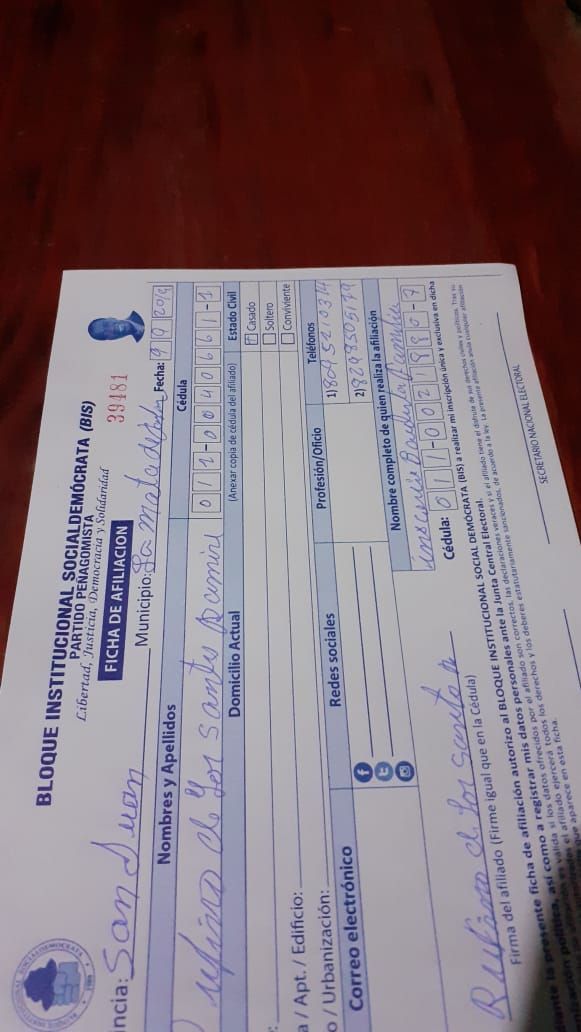 BLOQUE INSTITUCIONAL SOCIALDEMÓCRATA (BIS)
PARTIDO PEÑAGOMISTA
Libertad, Justicia, Democracia y Solidaridad
39481
FICHA DE AFILIACION
ncia: San Juan Municipio: La Mata de Fecha: 9 9 2019
Nombres y Apellidos Cédula
ufino de Los Santos Ramire 012-0040661-1
Domicilio Actual (Anexar copia de cédula del afiliado) Estado Civil
Casado
Soltero
Conviviente
a / Apt. / Edificio:
o / Urbanización:
Correo electrónico Redes sociales Profesión/Oficio Teléfonos
1)
2)
Nombre completo de quien realiza la afiliación
Bautista
Cédula: 011-0021880-7
Rufino de Los Santo
Firma del afiliado (Firme igual que en la Cédula)
ante la presente ficha de afiliación autorizo al BLOQUE INSTITUCIONAL SOCIAL DEMÓCRATA (BIS) a realizar mi inscripción única y exclusiva en dicha
zación política, así como a registrar mis datos personales ante la Junta Central Electoral.
es válida si los datos ofrecidos por el afiliado son correctos, las declaraciones veraces y si el afiliado tiene el disfrute de sus derechos civiles y políticos. Tras su
el afiliado ejercerá todos los derechos y los deberes estatutariamente sancionados, de acuerdo a la ley. La presente afiliación anula cualquier afiliación
que aparece en esta ficha.
SECRETARIO NACIONAL ELECTORAL